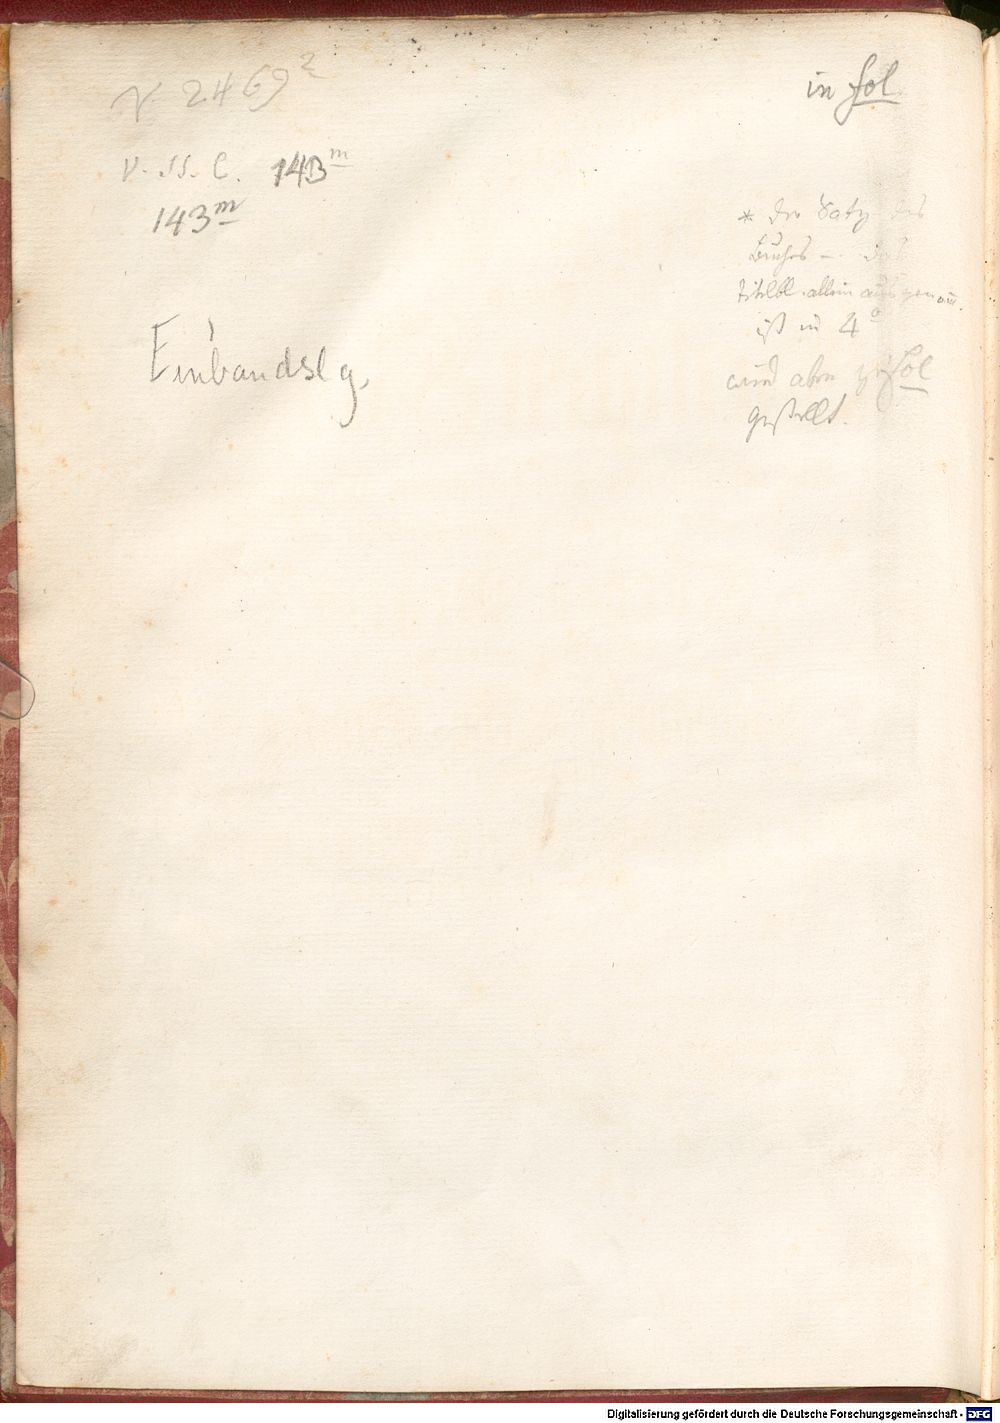 2469²
in fol
v. ss. c. 143ᵐ
143ᵐ
* der Satz des
Buches – das
Titelbl. allein ausgenom̄.
ist in 4°
wird aber zu fol
gestellt.
Einbandslg.
Digitalisierung gefördert durch die Deutsche Forschungsgemeinschaft - DFG